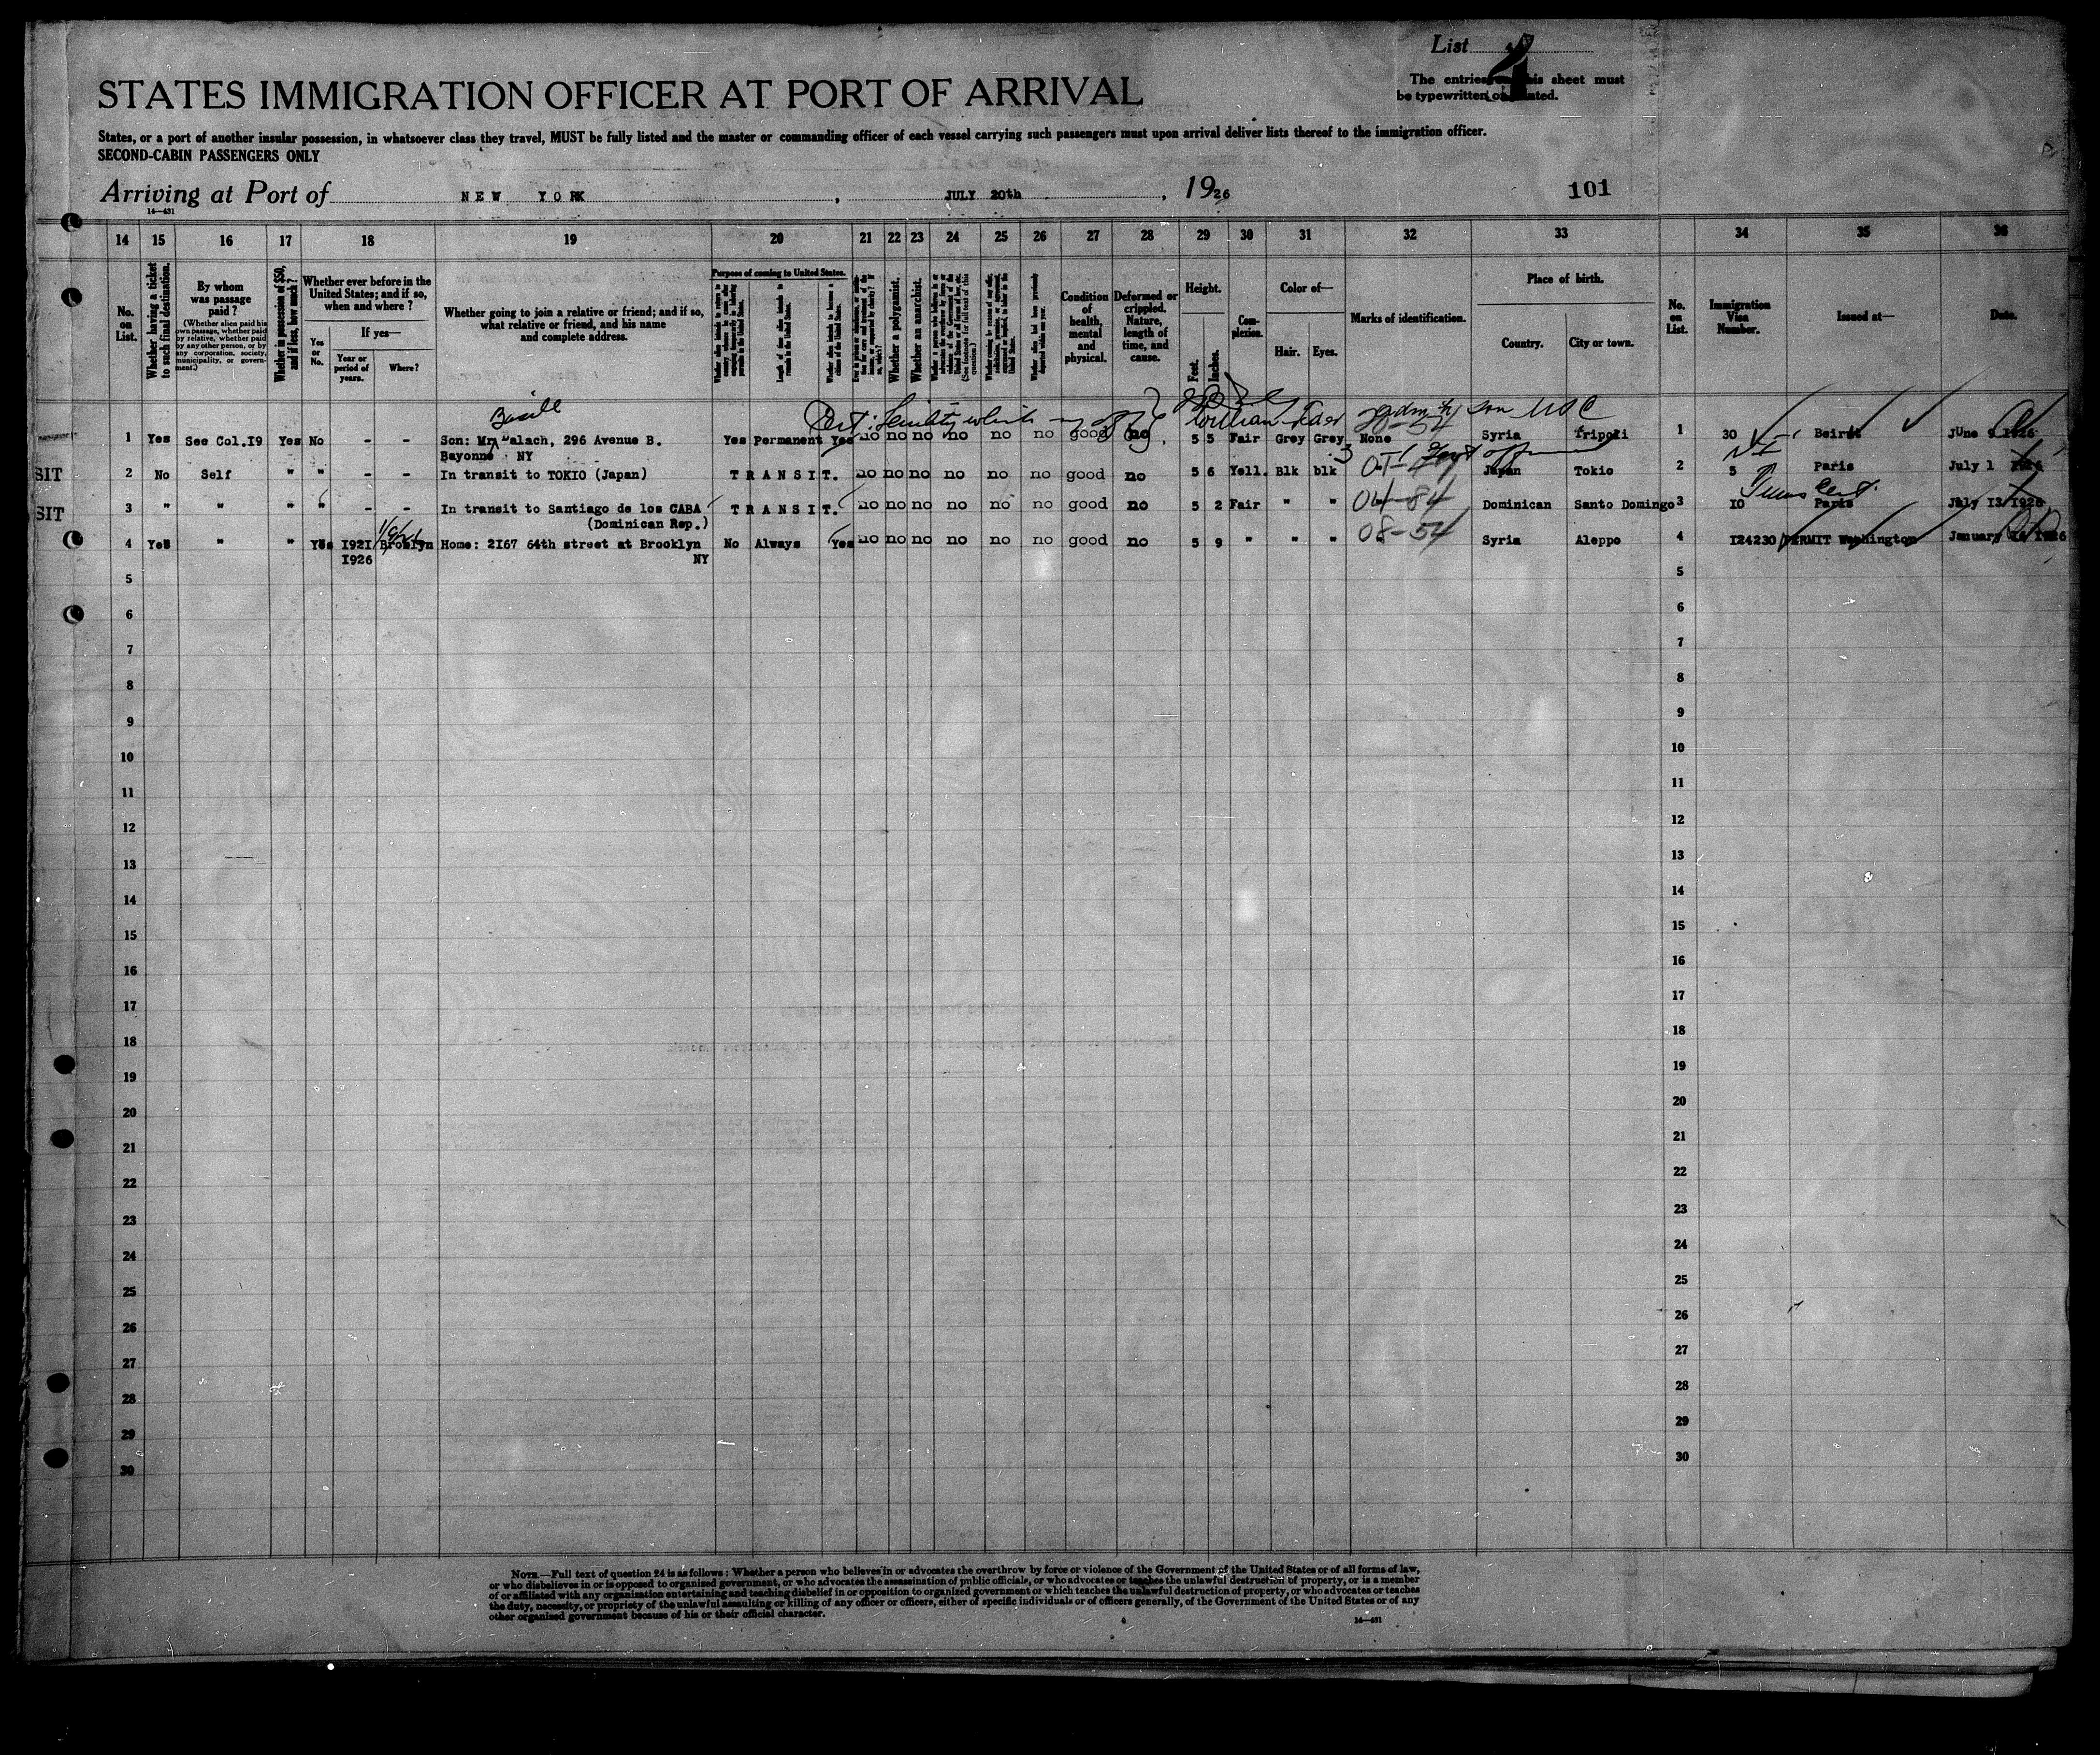 List
4
The entries on this sheet must
be typewritten or printed.
STATES IMMIGRATION OFFICER AT PORT OF ARRIVAL
States, or a port of another insular possession, in whatsoever class they travel, MUST be fully listed and the master or commanding officer of each vessel carrying such passengers must upon arrival deliver lists thereof to the immigration officer.
SECOND-CABIN PASSENGERS ONLY
Arriving at Port of NEW YORK, JULY 20th, 1926 101
14—431
14 15 16 17 18 19 20 21 22 23 24 25 26 27 28 29 30 31 32 33 34 35 36
No. on List.
Whether having a ticket to such final destination.
By whom was passage paid?
(Whether alien paid his own passage, whether paid by relative, whether paid by any other person, or by any corporation, society, municipality, or government.)
Whether in possession of $50, and if less, how much?
Whether ever before in the United States; and if so, when and where?
Yes or No.
If yes—
Year or period of years.
Where?
Whether going to join a relative or friend; and if so, what relative or friend, and his name and complete address.
Purpose of coming to United States.
Length of time alien intends to remain in the United States.
Whether alien intends to become a citizen of the United States.
Whether a polygamist.
Whether an anarchist.
Condition of health, mental and physical.
Deformed or crippled. Nature, length of time, and cause.
Height.
Feet.
Inches.
Complexion.
Color of—
Hair.
Eyes.
Marks of identification.
Place of birth.
Country.
City or town.
No. on List.
Immigration Visa Number.
Issued at—
Date.
Basill
1 Yes See Col.I9 Yes No - - Son: Mr alach, 296 Avenue B. Yes Permanent Yes no no no no no no good no 5 5 Fair Grey Grey None Syria Tripoli 1 30 Beirut JUne 9 1926
Bayonne NY
SIT 2 No Self " " - - In transit to TOKIO (Japan) TRANSIT. no no no no no no good no 5 6 Yell. Blk blk Japan Tokio 2 5 Paris July 1 1926
SIT 3 " " " " - - In transit to Santiago de los CABA TRANSIT. no no no no no no good no 5 2 Fair " " 04-84 Dominican Santo Domingo 3 10 Paris July 13/1926
(Dominican Rep.)
4 Yes " " Yes 192I Brooklyn Home: 2I67 64th street at Brooklyn No Always Yes no no no no no no good no 5 9 " " " 08-54 Syria Aleppo 4 I24230 PERMIT Washington January 1926
I926 NY
5 5
6 6
7 7
8 8
9 9
10 10
11 11
12 12
13 13
14 14
15 15
16 16
17 17
18 18
19 19
20 20
21 21
22 22
23 23
24 24
25 25
26 26
27 27
28 28
29 29
30 30
NOTE.—Full text of question 24 is as follows: Whether a person who believes in or advocates the overthrow by force or violence of the Government of the United States or of all forms of law,
or who disbelieves in or is opposed to organized government, or who advocates the assassination of public officials, or who advocates or teaches the unlawful destruction of property, or is a member
of or affiliated with any organization entertaining and teaching disbelief in or opposition to organized government or which teaches the unlawful destruction of property, or who advocates or teaches
the duty, necessity, or propriety of the unlawful assaulting or killing of any officer or officers, either of specific individuals or of officers generally, of the Government of the United States or of any
other organized government because of his or their official character.
14—431